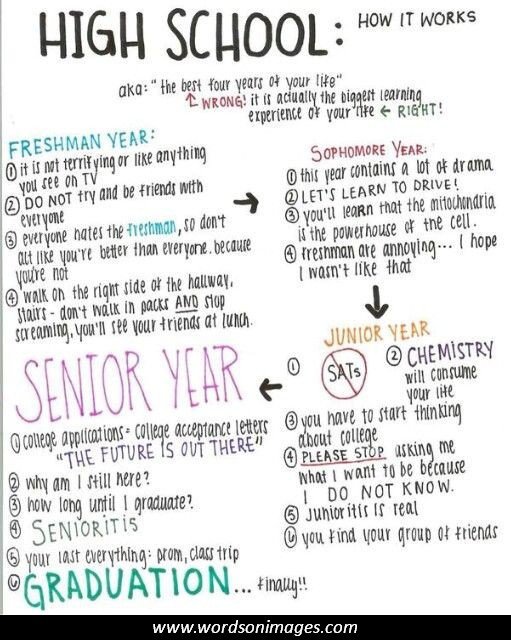 HIGH SCHOOL: HOW IT WORKS
aka: "the best four years of your life"
WRONG! it is actually the biggest learning
experience of your life ← RIGHT!
FRESHMAN YEAR:
① it is not terrifying or like anything
you see on TV
② DO NOT try and be friends with
everyone
③ everyone hates the freshman, so don't
act like you're better than everyone. because
you're not
④ walk on the right side of the hallway,
stairs - don't walk in packs AND stop
screaming, you'll see your friends at lunch.
SOPHOMORE YEAR:
① this year contains a lot of drama
② LET'S LEARN TO DRIVE!
③ you'll learn that the mitochondria
is the powerhouse of the cell.
④ freshman are annoying... I hope
I wasn't like that
JUNIOR YEAR
① SATs
② CHEMISTRY
will consume
your life
③ you have to start thinking
about college
④ PLEASE STOP asking me
what I want to be because
I DO NOT KNOW.
⑤ Junioritis is real
⑥ you find your group of friends
SENIOR YEAR
① college applications = college acceptance letters
"THE FUTURE IS OUT THERE"
② why am I still here?
③ how long until I graduate?
④ SENIORITIS
⑤ your last everything: prom, class trip
⑥ GRADUATION... finally!!
www.wordsonimages.com